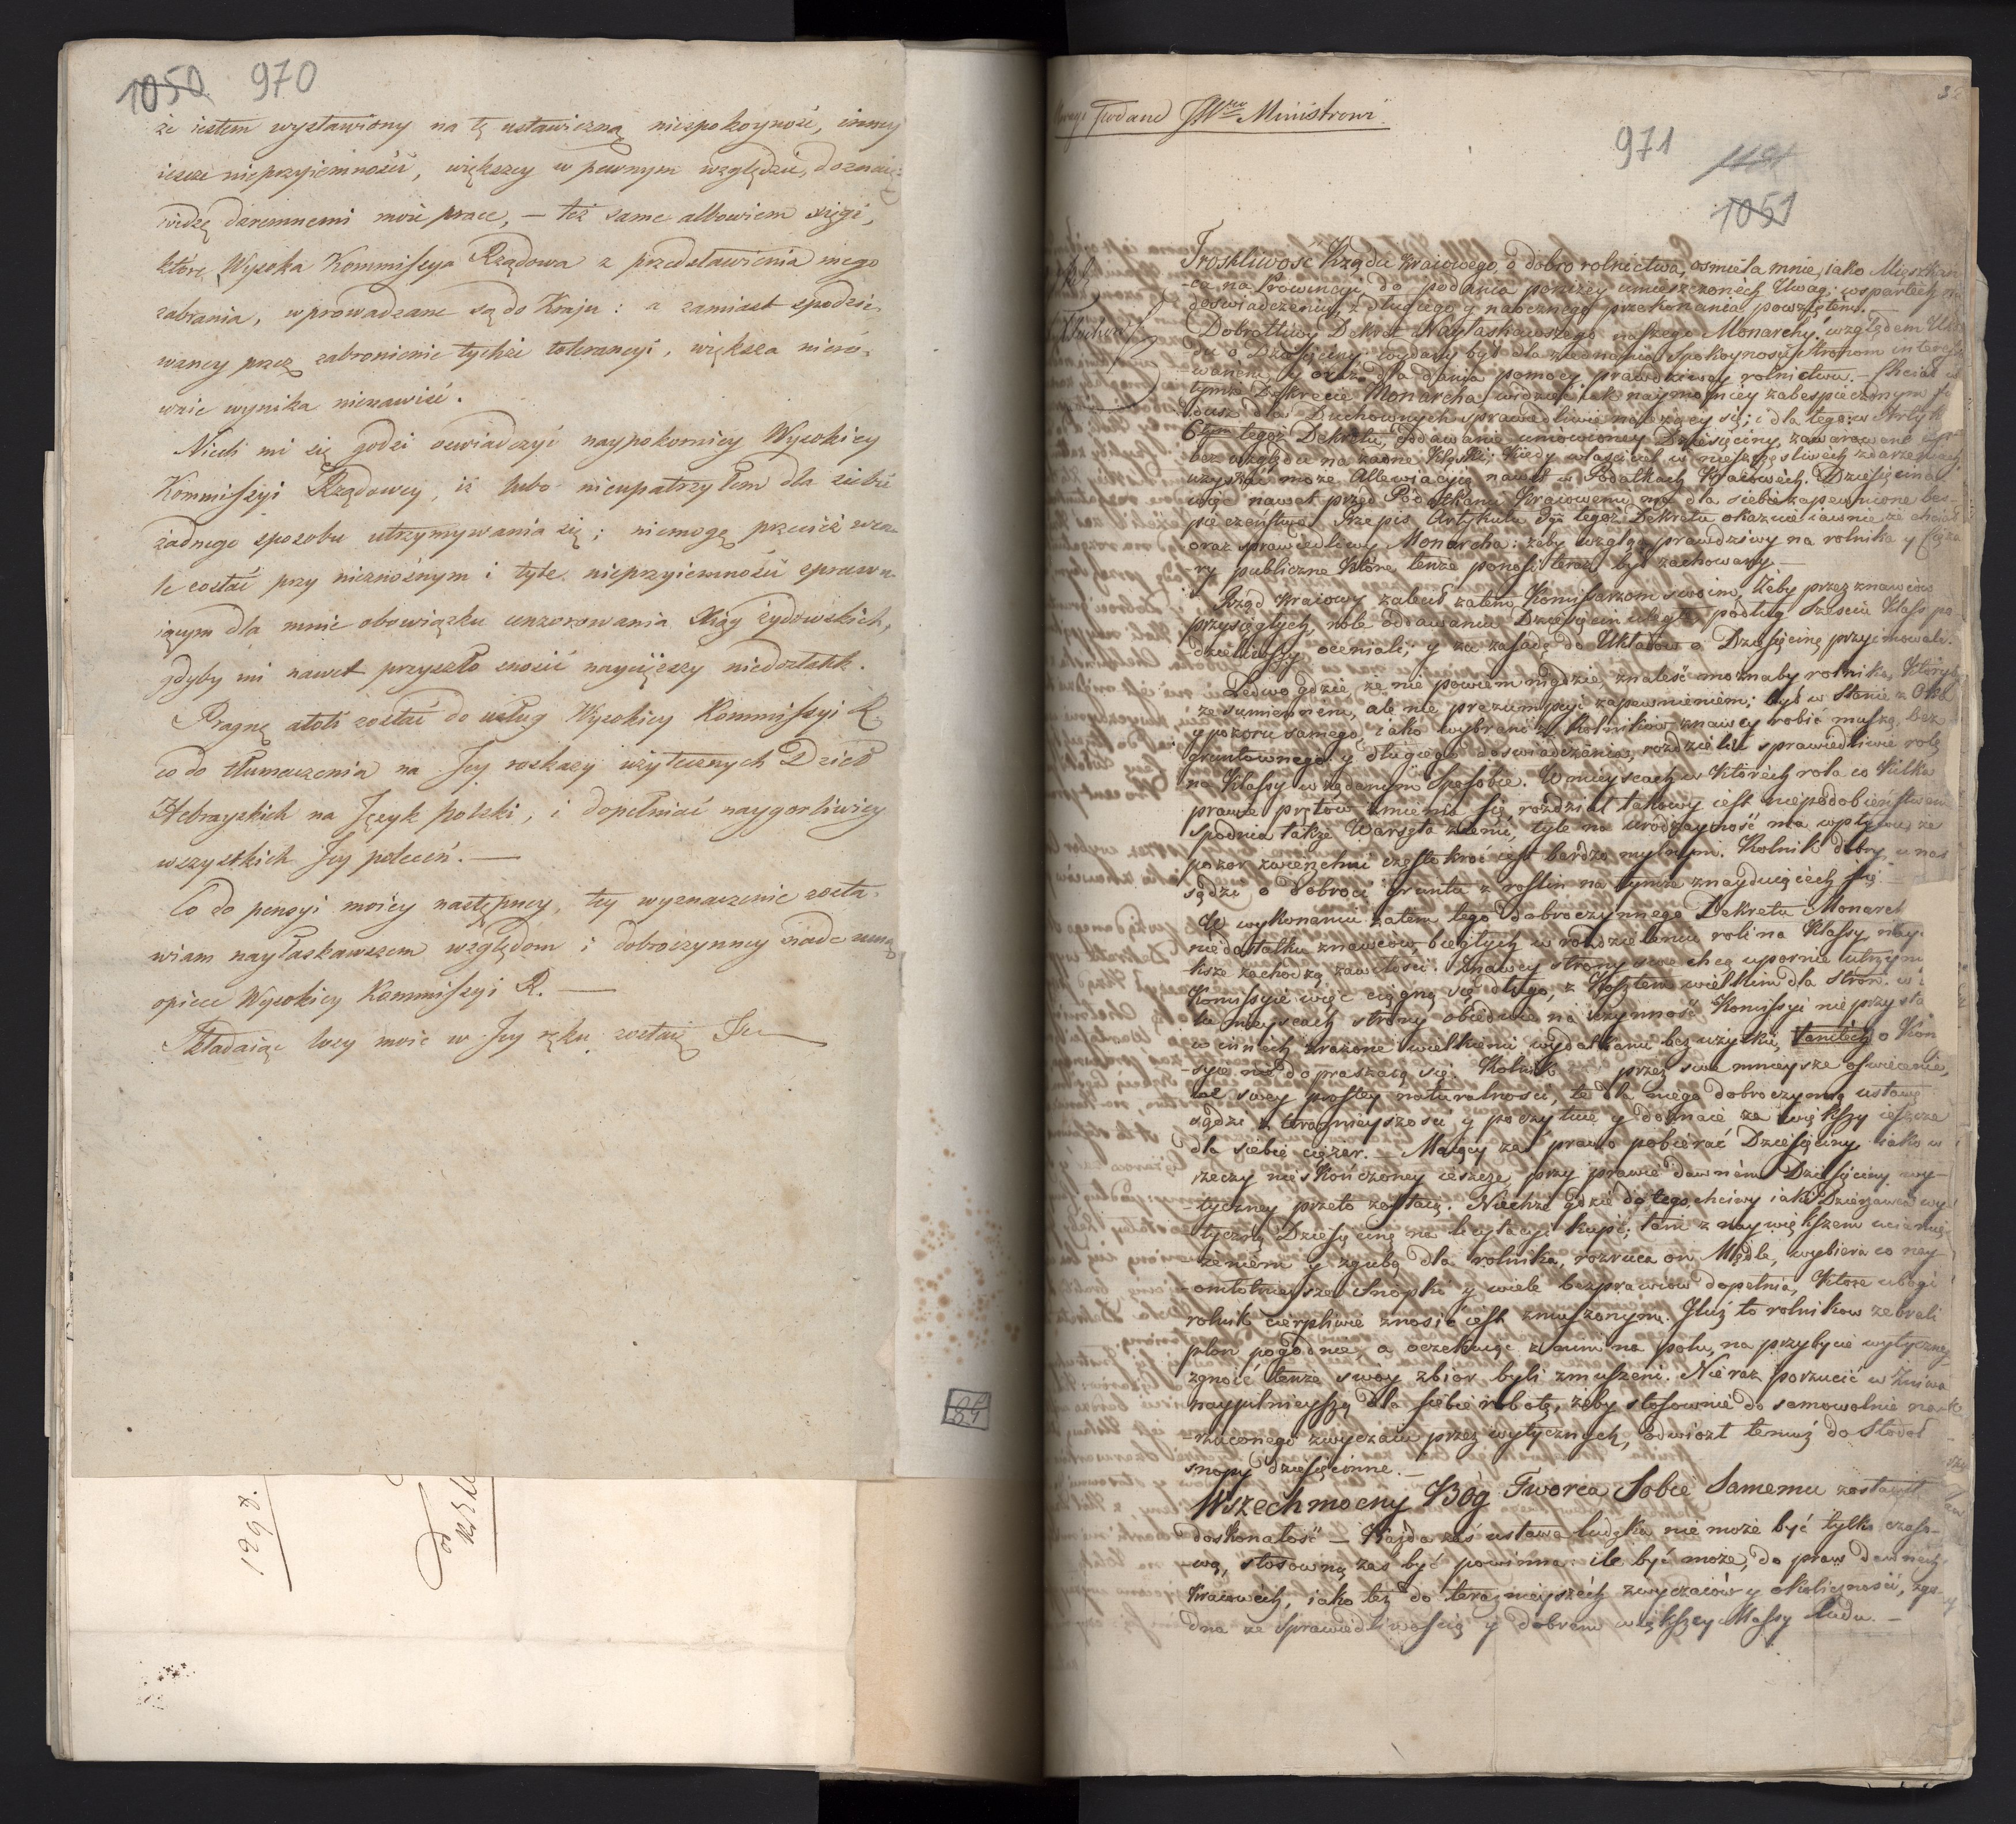 1050 970
że iestem wystawiony na tę ustawiczną niespokoyność, inney
ieszcze nieprzyiemności, większey w pewnym względzie, doznaię:
widzę daremnemi moie prace, — też same albowiem xięgi,
które Wysoka Kommissya Rządowa z przedstawienia mego
zabrania, wprowadzane są do Kraju: a zamiast spodzie-
waney przez zabronienie tychże tolerancyi, większa
wznie wynika nienawiść.
Niech mi się godzi oswiadczyć naypokorniey Wysokiey
Kommissyi Rządowey, iż lubo nieupatrzyłem dla siebie
żadnego sposobu utrzymywania się; niemogę przecież
zostać przy nieznośnym i tyle nieprzyiemności sprawu-
iącym dla mnie obowiązku cenzorowania Xiąg żydowskich,
gdyby mi nawet przyszło znosić nayciższy niedostatek.
Pragnę atoli zostać do usług Wysokiey Kommissyi R.
co do tłumaczenia na Jey roskazy użytecznych Dzieł
Hebrayskich na Język polski, i dopełniać naygorliwiey
wszystkich Jey poleceń. —
Co do pensyi moiey następney, tey wyznaczenie zosta-
wiam nayłaskawszem względom i dobroczynney
opiece Wysokiey Kommissyi R. —
Składaiąc losy moie w Jey ręku zostaię
1298.
84
Uwagi Podane JW Ministrowi
971
1051
Troskliwość Rządu kraiowego, o dobro rolnictwa, osmiela mnie, iako Mieszkań-
ca na Prowincyi, do podania poniżey umieszczonech Uwag, wspartech na
doświadczeniu, z długiego y naocznego przekonania powziętem.
Dobrotliwy Dekret Nayłaskawszego naszego Monarchy, względem Ukła-
du o Dziesięciny wydany był dla ziednania spokoyności Stronom interess-
-wanem, y oraz dla dania pomocy prawdziwey rolnictwu. — Chciał w
tymże Dekrecie Monarcha widzieć iak naymocniey zabespieczonym
dusz dla Duchownych sprawiedliwie należący się; i dla tego: w Artyk
6tym tegoż Dekretu, oddawanie umowioney Dziesięciny, zawarowane
bez względu na żadne Klęski; kiedy właściciel w nieszczęsliwech zdarzeniach
uzyskać może Allewiacyię nawet w Podatkach Kraiowech. Dziesięcina
więc nawet przed Podatkami Kraiowemi, ma dla siebie zapewnione bes-
pieczeństwo. Przepis Artykułu tegoż Dekretu okazuie iawnie, że chciał
oraz sprawiedliwy Monarcha: żeby wzgląd prawdziwy na rolnika y cięża-
-ry publiczne które tenże ponosi teraz był zachowany. —
Rząd kraiowy zalecił zatem Kommissarzom swoim, żeby przez znawców
przysięgłych, role oddawaniu Dziesięcin uległe, podług sześciu Klass po-
dzieliwszy, oceniali; y za zasadę do Układow o Dziesięcinę przyimowali.
Ledwo gdzie, że nie powiem nigdzie, znaleść możnaby rolnika, któryby
ze sumieniem, ale nie prezumpcyi zapewnieniem; był w stanie z Oka
y pozoru samego, iako wybrani z Rolników znawcy robić muszą, bez
gruntownego y długiego doswiadczenia, rozdzielić sprawiedliwie rolę
na Klassy w żądanym sposobie. W mieyscach w których rola co kilka
prawie prętow zmienia się, rozdział takowy iest niepodobieństwem
spodnia także Warszta ziemi, tyle na urodzayność ma wpływu, że
pozor zwierzchni częstokroć iest bardzo mylnym. Rolnik dobry u nas
sądzi o dobroci gruntu z roslin na tymże znayduiąciech się. —
W wykonaniu zatem tego dobroczynnego Dekretu Monarch
niedostatku znawców biegłych w rozdzieleniu roli na Klassy, nay-
-ksze zachodzą zawiłości. Znawcy strony swe chcą upornie utrzym
Komissyie więc ciągną się długo, z Kosztem wielkim dla Stron. w
lu mieyscach strony obiedwie na czynność Komissyi nie przysta
w innech zrażone wielkiemi wydatkami bez użytku, o Kom
-syie nie dopraszaią się. Rolnik przez swe mnieysze oswiecenie,
lec swey prostey naturalności, te dla niego dobroczynną ustawę
sądzi z teraznieyszości y poczytuie y doznaie za większy ieszcze
dla siebie ciężar. — Maiący zaś prawo pobierać Dziesięciny iako w
rzeczy nieskończoney ieszcze, przy prawie dawnem Dziesięciny wy-
-tyczney przeto zostaią. Niechże gdzie do tego chciwy iaki Dzierżawca wy-
tyczną Dziesięcinę na licytacyi kupi, tam z naywiększem uciemię-
żeniem y zgubą dla rolnika, rozrzuca on Mędle, wybiera co nay-
-omłotnieysze Snopki y wiele bezprawiów dopełnia, które ubogi
rolnik cierpliwie znosić iest zmuszonym. Iluż to rolnikow zebrali
plon pogodnie, a oczekuiąc z nim na polu, na przybycie wytyczney
zgnoić tenże swoy zbior byli zmuszeni. Nie raz porzucić w żniwa
naypilnieyszą dla siebie robotę, żeby stosownie do samowolnie na-
rzuconego zwyczaiu przez wytycznych, odwiozł temuż do Stodoł
snopy dziesięcinne. —
Wszechmocny Bóg Tworca Sobie Samemu zostawił
doskonałość — Każda zaś ustawa ludzka nie może być tylko czaso-
wą, stosowną zaś być powinna: ile być może, do praw dawniech
Kraiowech, iako też do teraznieyszech zwyczaiów y okoliczności, zgo-
dna ze sprawiedliwością y dobrem większey Massy ludu. —